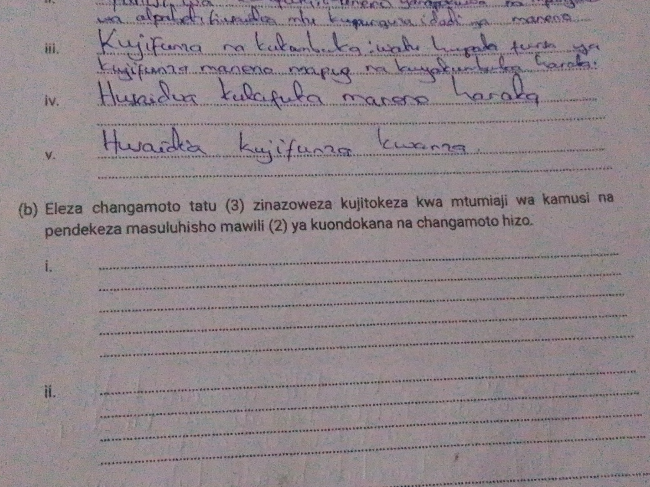 wa alphabeti humsaidia mtu kupunguza idadi ya maneno
iii. Kujifunza na kukumbuka: watu hupata fursa ya
kujifunza maneno mapya na kuyakumbuka haraka.
iv. Husaidia kutafuta maneno haraka
v. Husaidia kujifunza kwanza.
(b) Eleza changamoto tatu (3) zinazoweza kujitokeza kwa mtumiaji wa kamusi na
pendekeza masuluhisho mawili (2) ya kuondokana na changamoto hizo.
i.
ii.